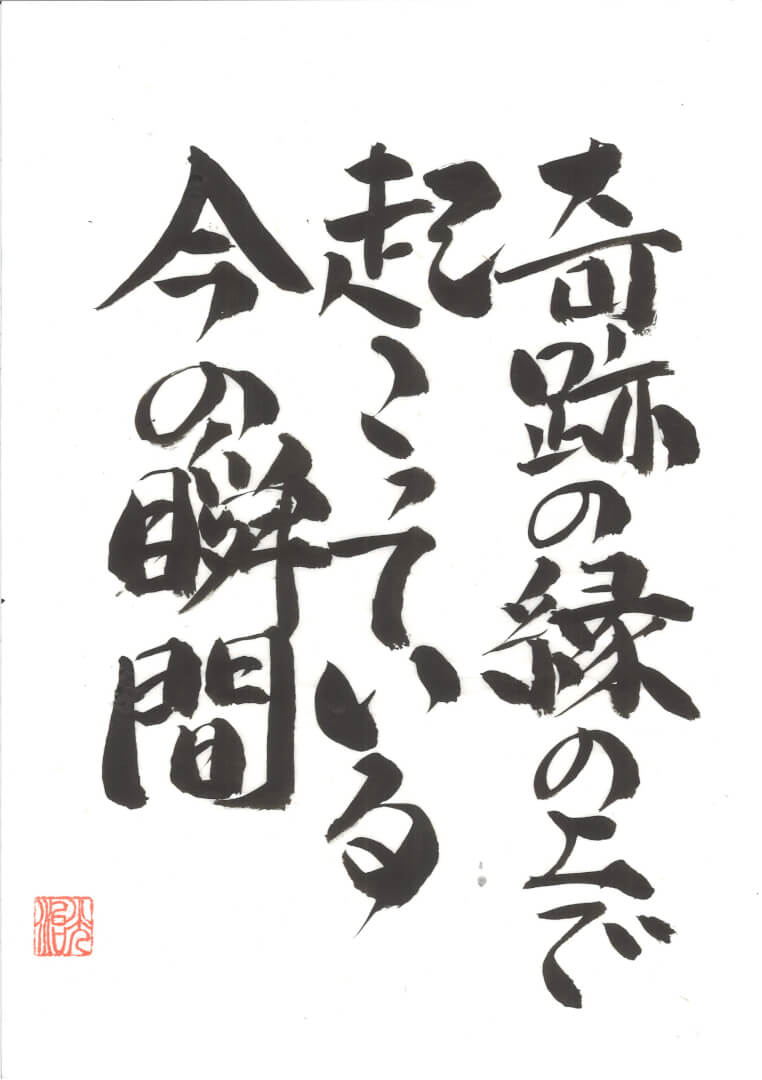 奇跡の縁の上で
起こっている
今の瞬間